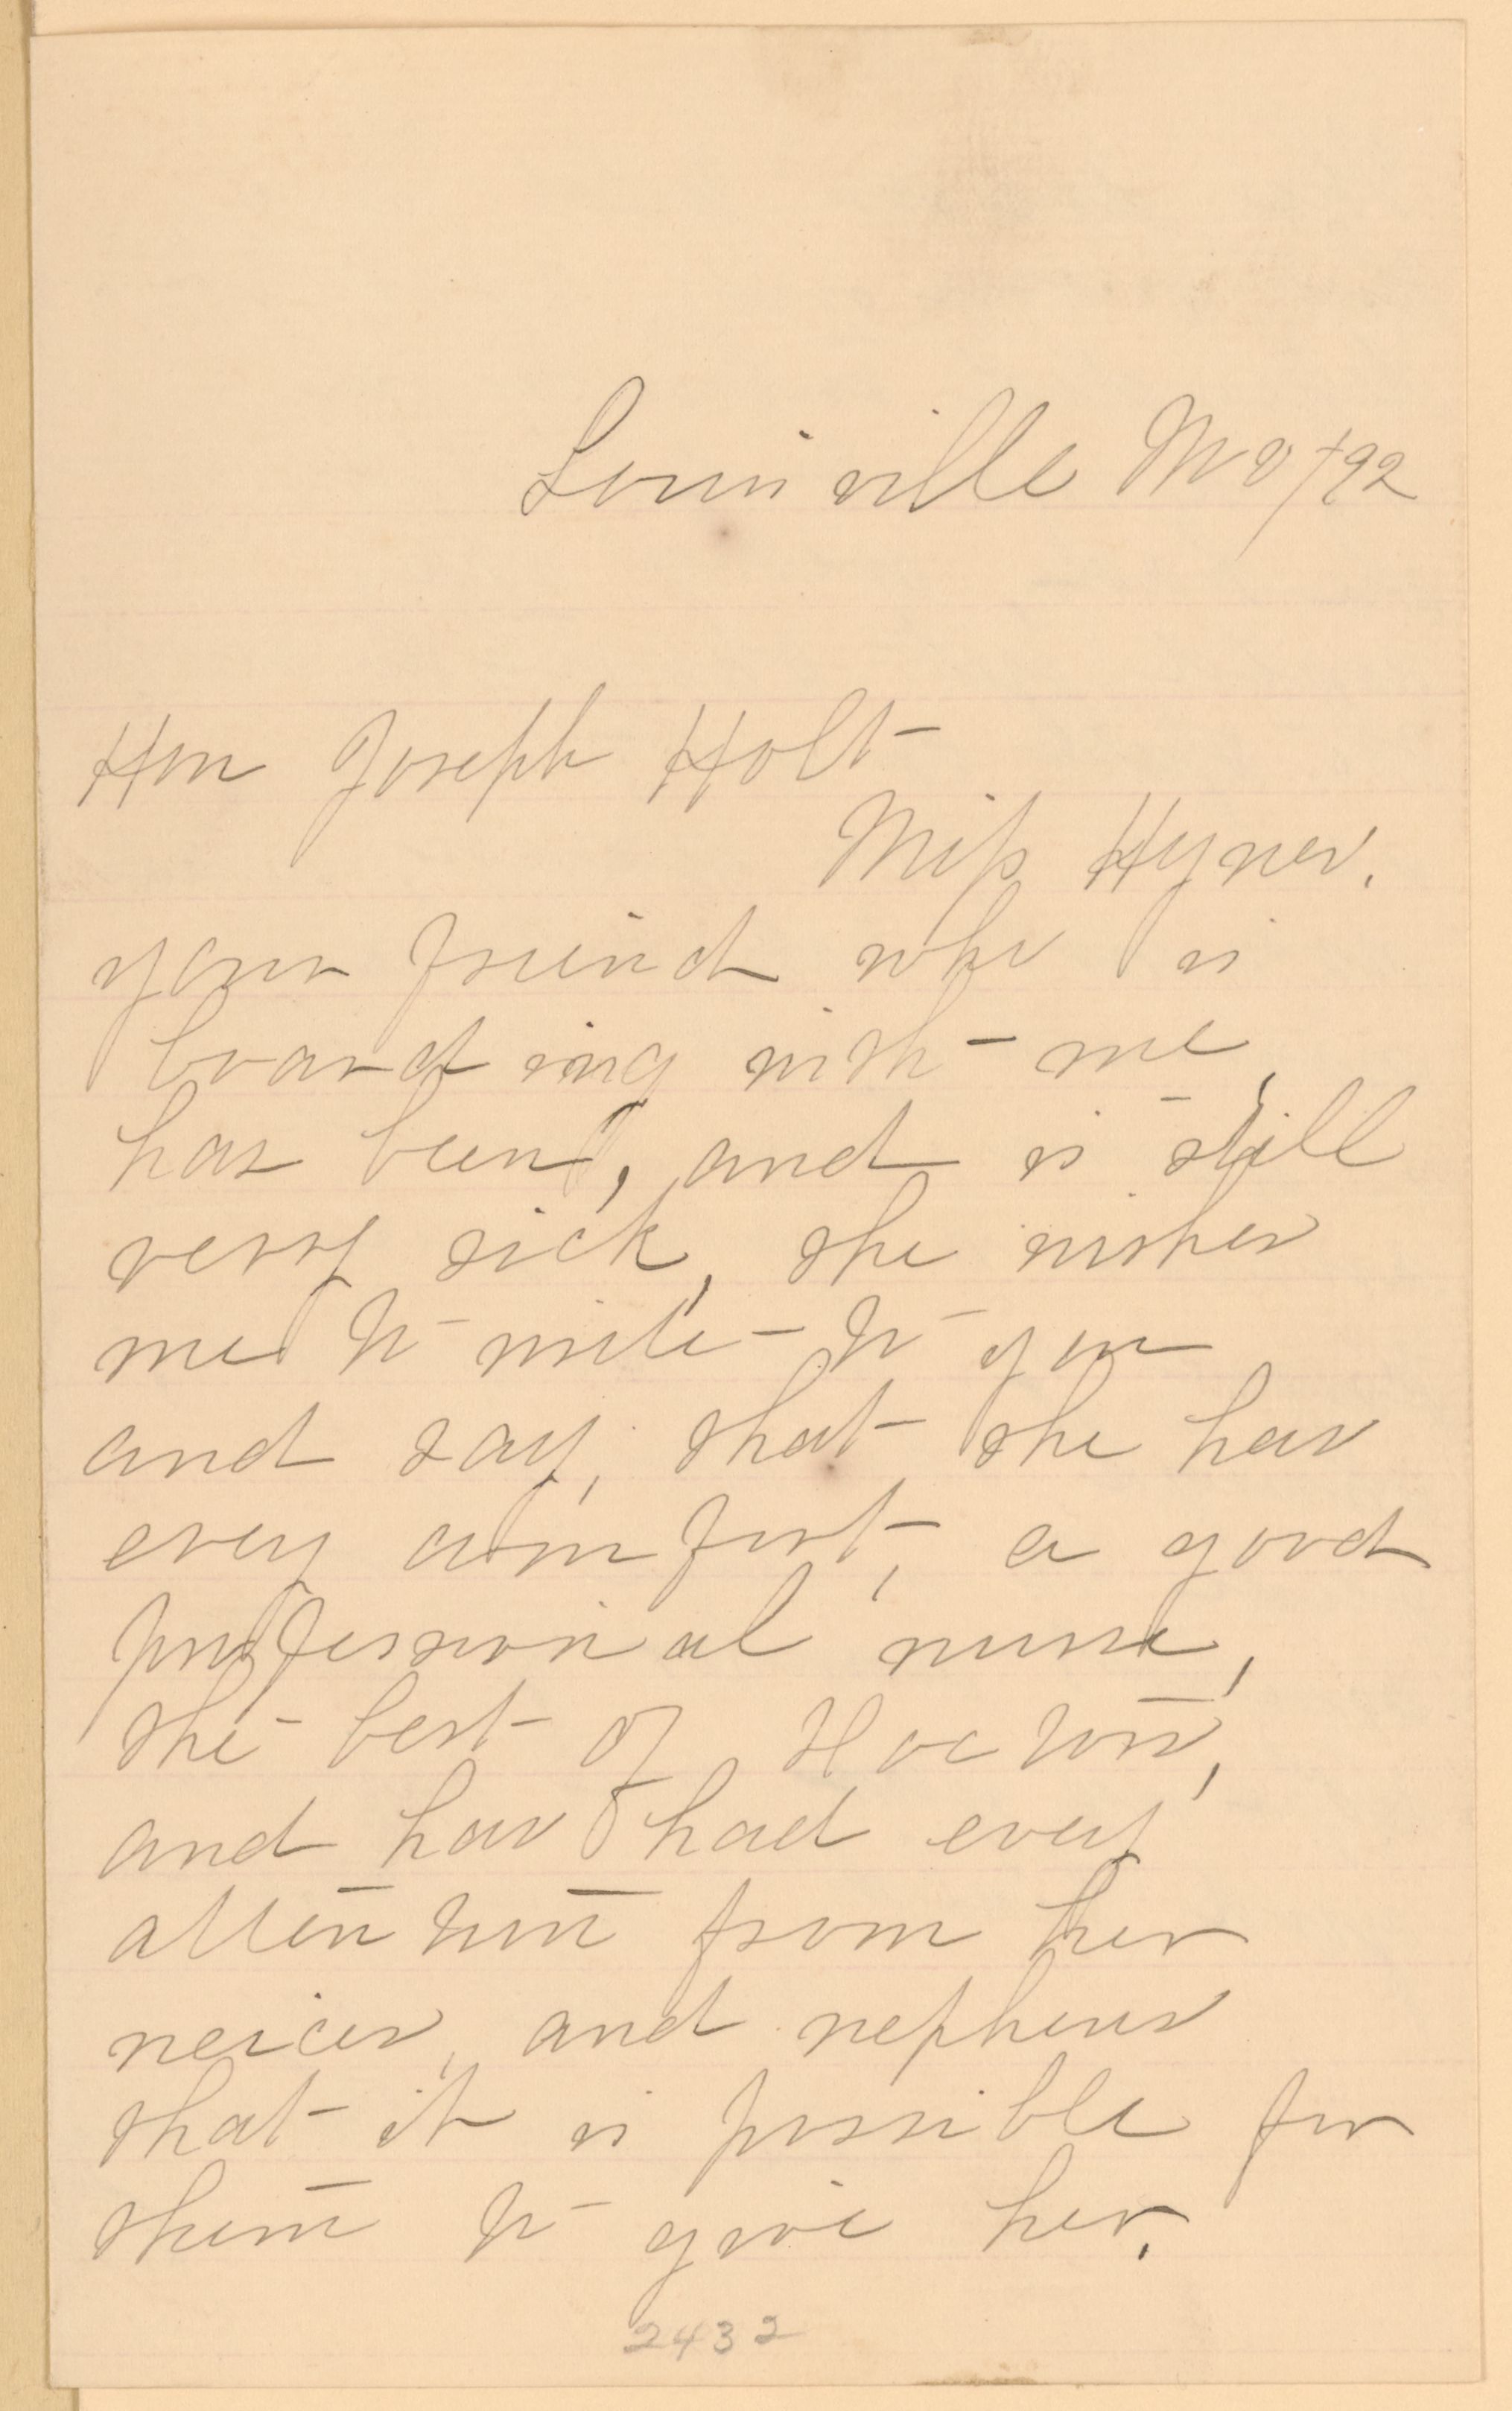 Louisville M 9/92
Hon Joseph Holt
Miss Hynes,
your friend who is
boarding with me,
has been, and is still
very sick, she wishes
me to write to you
and say, that she has
every comfort, a good
professional nurse,
the best of Doctors,
and has had every
attention from her
neices, and nephews
that it is possible for
them to give her.
2432